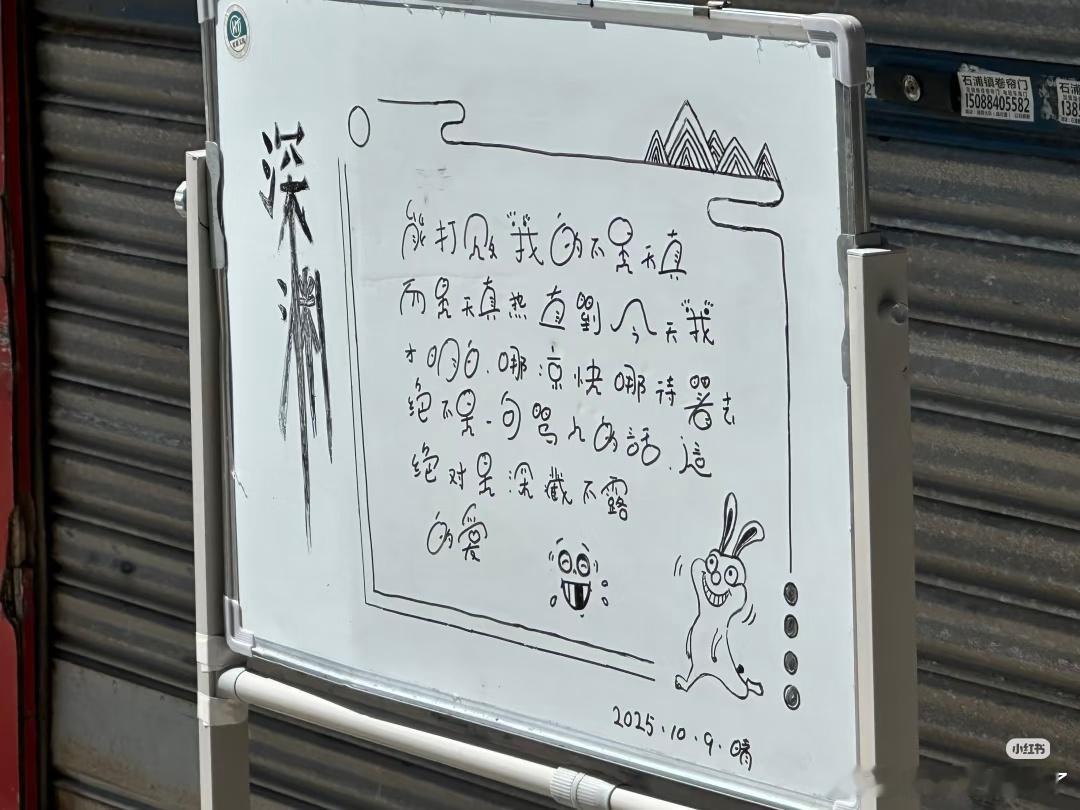 深渊
能打败我的不是天真
而是天真热 直到今天我
才明白.哪凉快哪待著去
绝不是一句骂人的話.這
绝对是深藏不露
的愛
2025.10.9.晴
石浦镇卷帘门
15088405582
小红书